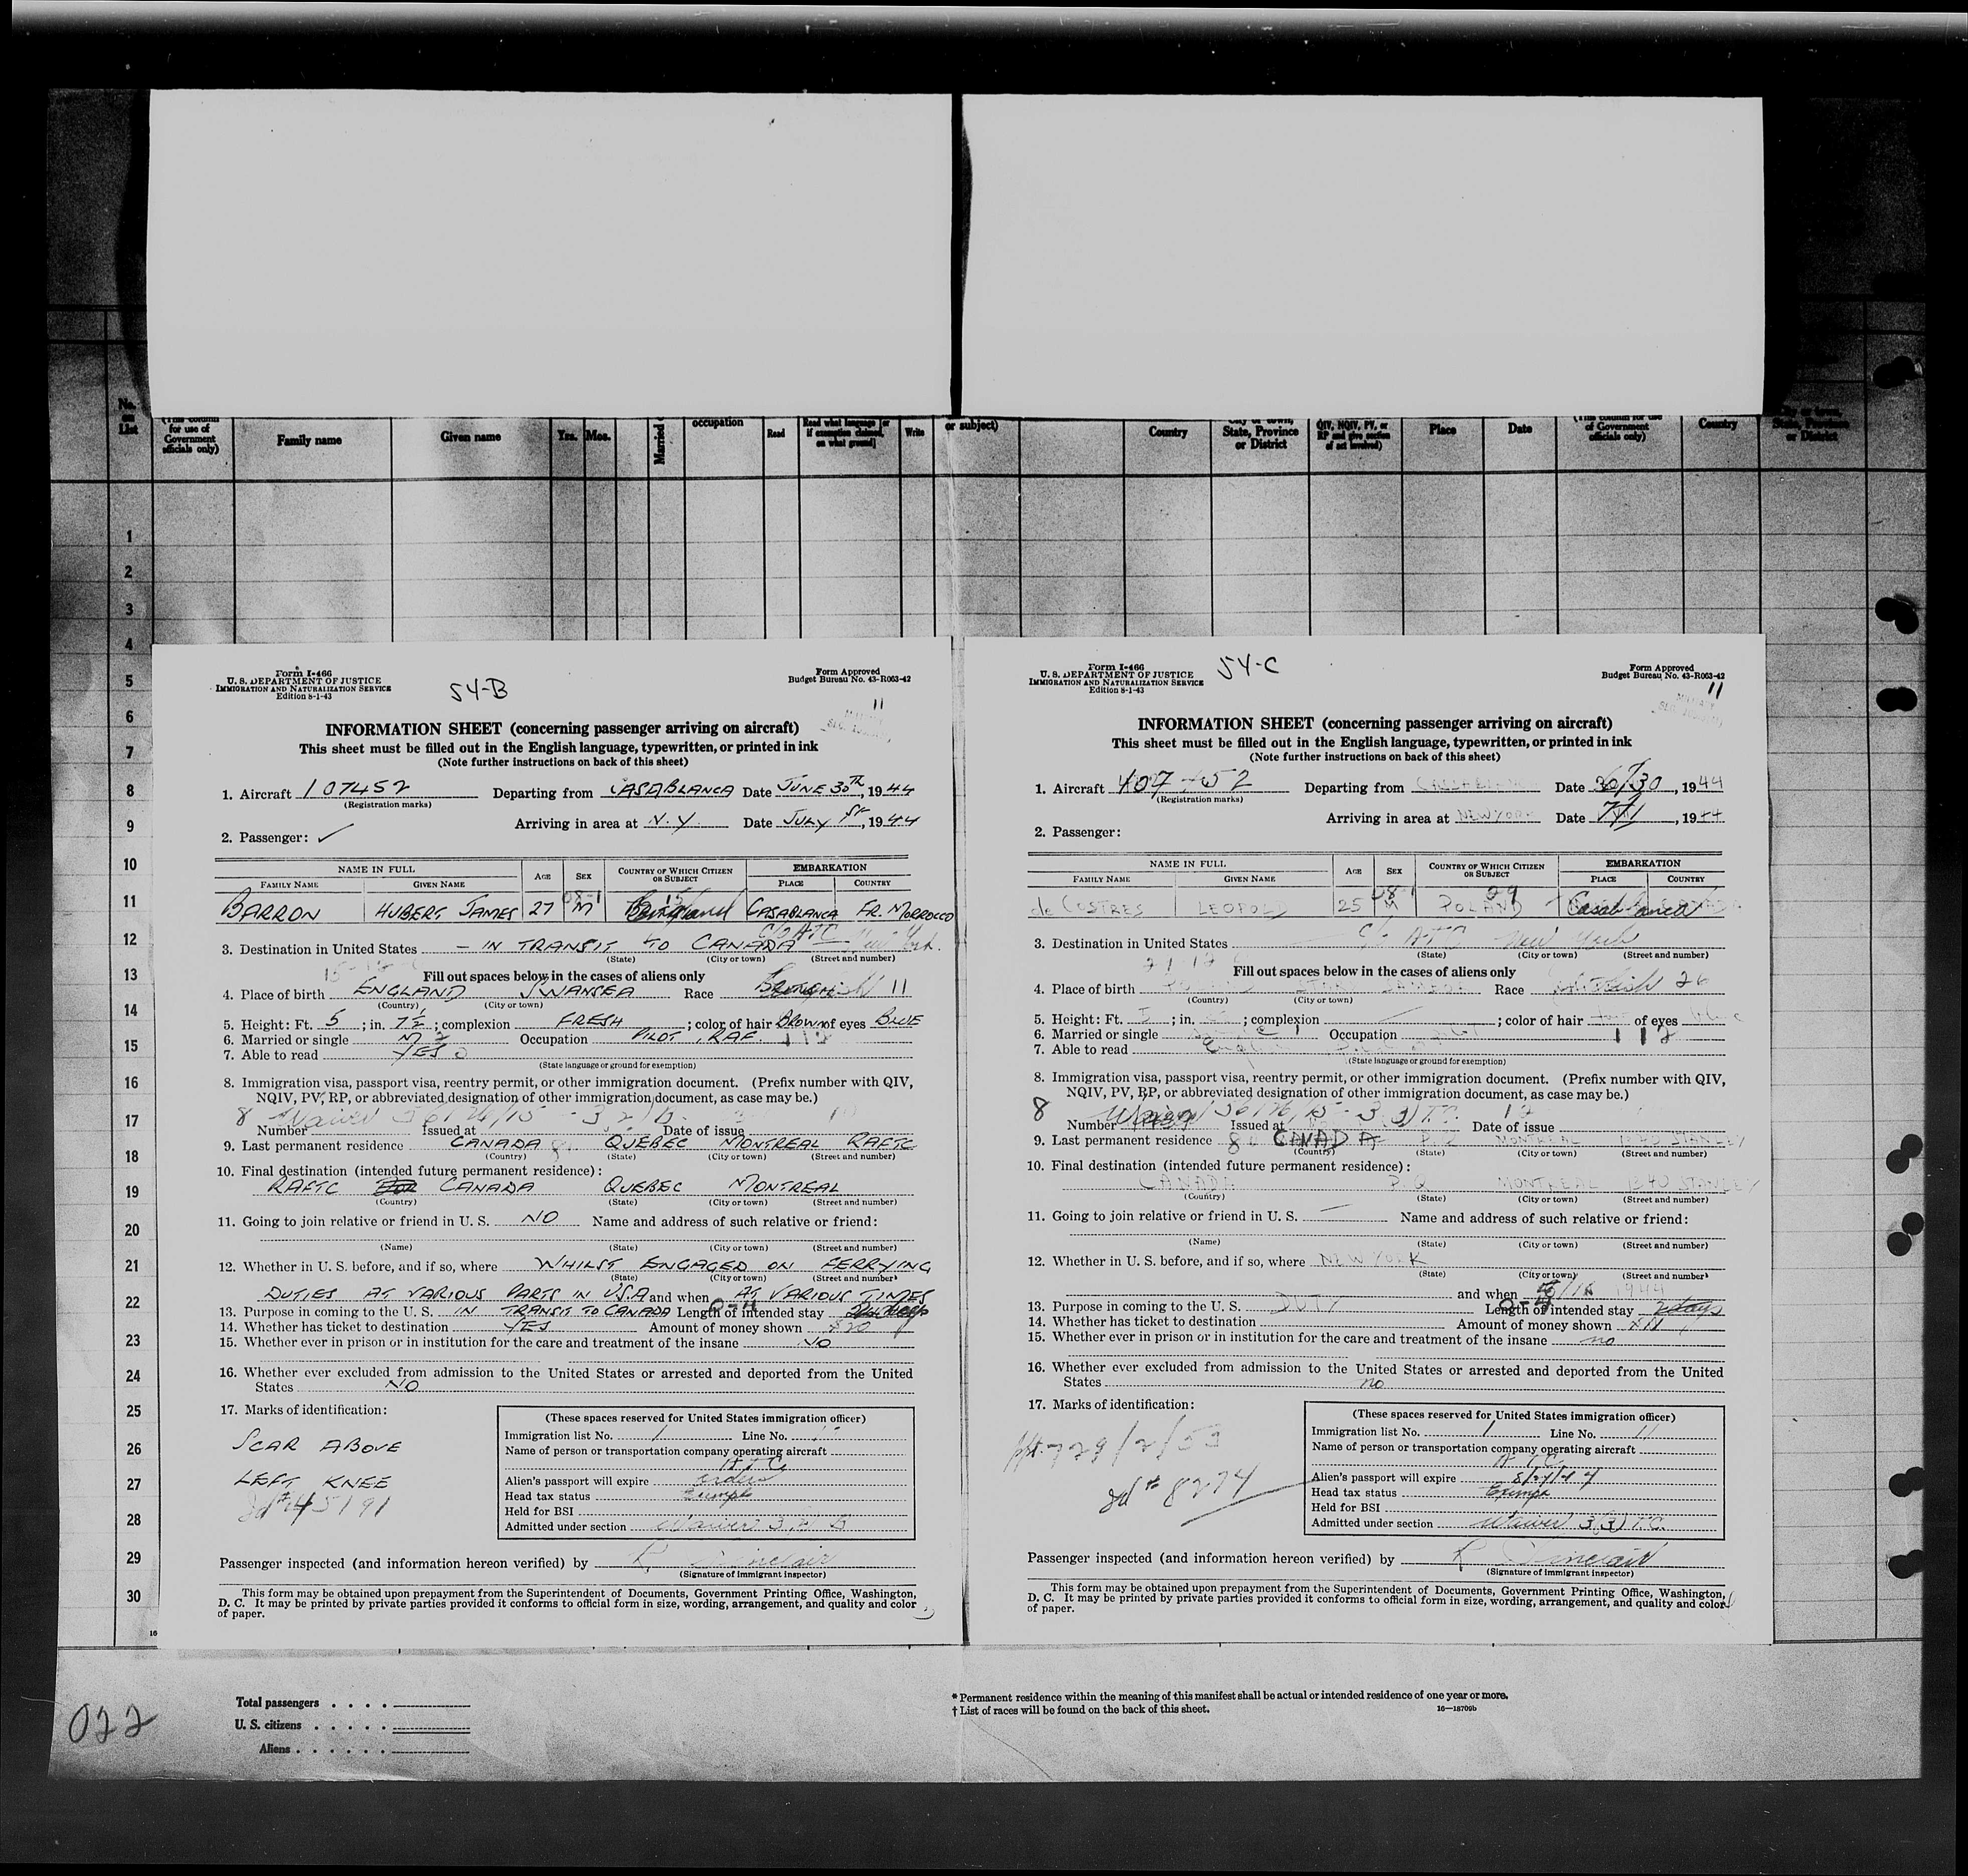 No. on List
(This column for use of Government officials only)
Family name
Given name
Yrs.
Mos.
Married
occupation
Read
Read what language [or if exemption claimed, on what ground]
Write
or subject)
Country
City or town, State, Province or District
QIV, NQIV, PV, or RP and give section of act involved)
Place
Date
(This column for use of Government officials only)
Country
City or town, State, Province or District
1
2
3
4
5
6
7
8
9
10
11
12
13
14
15
16
17
18
19
20
21
22
23
24
25
26
27
28
29
30
16
Form I-466
U. S. DEPARTMENT OF JUSTICE
IMMIGRATION AND NATURALIZATION SERVICE
Edition 8-1-43
54-B
Form Approved
Budget Bureau No. 43-R063-42
11
INFORMATION SHEET (concerning passenger arriving on aircraft)
This sheet must be filled out in the English language, typewritten, or printed in ink
(Note further instructions on back of this sheet)
1. Aircraft 107452 Departing from CASABLANCA Date JUNE 30TH, 1944
(Registration marks)
Arriving in area at N.Y. Date JULY 1ST, 1944
2. Passenger: ✓
NAME IN FULL AGE SEX COUNTRY OF WHICH CITIZEN OR SUBJECT EMBARKATION
FAMILY NAME GIVEN NAME PLACE COUNTRY
08-1 15
BARRON HUBERT JAMES 27 M CASABLANCA FR. MORROCCO
c/o ATC New York.
3. Destination in United States — IN TRANSIT TO CANADA —
(State) (City or town) (Street and number)
Fill out spaces below in the cases of aliens only
4. Place of birth ENGLAND SWANSEA Race 11
(Country) (City or town)
5. Height: Ft. 5; in. 7½; complexion FRESH; color of hair BROWN of eyes BLUE
6. Married or single M 2 Occupation PILOT, RAF. 112
7. Able to read YES
(State language or ground for exemption)
8. Immigration visa, passport visa, reentry permit, or other immigration document. (Prefix number with QIV,
NQIV, PV, RP, or abbreviated designation of other immigration document, as case may be.)
8 Waiver
Number Issued at Date of issue
9. Last permanent residence CANADA QUEBEC MONTREAL RAFTC
(Country) (State) (City or town) (Street and number)
10. Final destination (intended future permanent residence):
RAFTC CANADA QUEBEC MONTREAL
(Country) (State) (City or town) (Street and number)
11. Going to join relative or friend in U. S. NO Name and address of such relative or friend:
(Name) (State) (City or town) (Street and number)
12. Whether in U. S. before, and if so, where WHILST ENGAGED ON FERRYING
(State) (City or town) (Street and number)
DUTIES AT VARIOUS PARTS IN USA and when AT VARIOUS TIMES
13. Purpose in coming to the U. S. IN TRANSIT TO CANADA Length of intended stay
14. Whether has ticket to destination YES Amount of money shown $20
15. Whether ever in prison or in institution for the care and treatment of the insane NO
16. Whether ever excluded from admission to the United States or arrested and deported from the United
States NO
17. Marks of identification:
SCAR ABOVE
LEFT KNEE
Id# 45191
(These spaces reserved for United States immigration officer)
Immigration list No. 1 Line No.
Name of person or transportation company operating aircraft
A.T.C.
Alien's passport will expire orders
Head tax status Exempt
Held for BSI
Admitted under section Waiver
Passenger inspected (and information hereon verified) by R. Sinclair
(Signature of immigrant inspector)
This form may be obtained upon prepayment from the Superintendent of Documents, Government Printing Office, Washington,
D. C. It may be printed by private parties provided it conforms to official form in size, wording, arrangement, and quality and color
of paper.
Form I-466
U. S. DEPARTMENT OF JUSTICE
IMMIGRATION AND NATURALIZATION SERVICE
Edition 8-1-43
54-C
Form Approved
Budget Bureau No. 43-R063-42
11
INFORMATION SHEET (concerning passenger arriving on aircraft)
This sheet must be filled out in the English language, typewritten, or printed in ink
(Note further instructions on back of this sheet)
1. Aircraft 107452 Departing from CASABLANCA Date 6/30, 1944
(Registration marks)
Arriving in area at NEW YORK Date 7/1, 1944
2. Passenger:
NAME IN FULL AGE SEX COUNTRY OF WHICH CITIZEN OR SUBJECT EMBARKATION
FAMILY NAME GIVEN NAME PLACE COUNTRY
08-1 29
de COSTRES LEOPOLD 25 M POLAND Casablanca
3. Destination in United States c/o ATC New York
(State) (City or town) (Street and number)
Fill out spaces below in the cases of aliens only
4. Place of birth Race 26
(Country) (City or town)
5. Height: Ft. 5; in. ; complexion ; color of hair of eyes blue
6. Married or single Occupation 112
7. Able to read English
(State language or ground for exemption)
8. Immigration visa, passport visa, reentry permit, or other immigration document. (Prefix number with QIV,
NQIV, PV, RP, or abbreviated designation of other immigration document, as case may be.)
8 Waiver
Number Issued at Date of issue
9. Last permanent residence CANADA P.Q. MONTREAL 1340 STANLEY
(Country) (State) (City or town) (Street and number)
10. Final destination (intended future permanent residence):
CANADA P.Q. MONTREAL 1340 STANLEY
(Country) (State) (City or town) (Street and number)
11. Going to join relative or friend in U. S. — Name and address of such relative or friend:
(Name) (State) (City or town) (Street and number)
12. Whether in U. S. before, and if so, where NEW YORK
(State) (City or town) (Street and number)
and when 1944
13. Purpose in coming to the U. S. DUTY Length of intended stay 2 days
14. Whether has ticket to destination Amount of money shown
15. Whether ever in prison or in institution for the care and treatment of the insane no
16. Whether ever excluded from admission to the United States or arrested and deported from the United
States no
17. Marks of identification:
Id # 8274
(These spaces reserved for United States immigration officer)
Immigration list No. 1 Line No. 11
Name of person or transportation company operating aircraft
A.T.C.
Alien's passport will expire
Head tax status Exempt
Held for BSI
Admitted under section Waiver 3(3) T.C.
Passenger inspected (and information hereon verified) by R Sinclair
(Signature of immigrant inspector)
This form may be obtained upon prepayment from the Superintendent of Documents, Government Printing Office, Washington,
D. C. It may be printed by private parties provided it conforms to official form in size, wording, arrangement, and quality and color
of paper.
022
Total passengers . . . .
U. S. citizens . . . . .
Aliens . . . . . .
* Permanent residence within the meaning of this manifest shall be actual or intended residence of one year or more.
† List of races will be found on the back of this sheet.
16—18709b